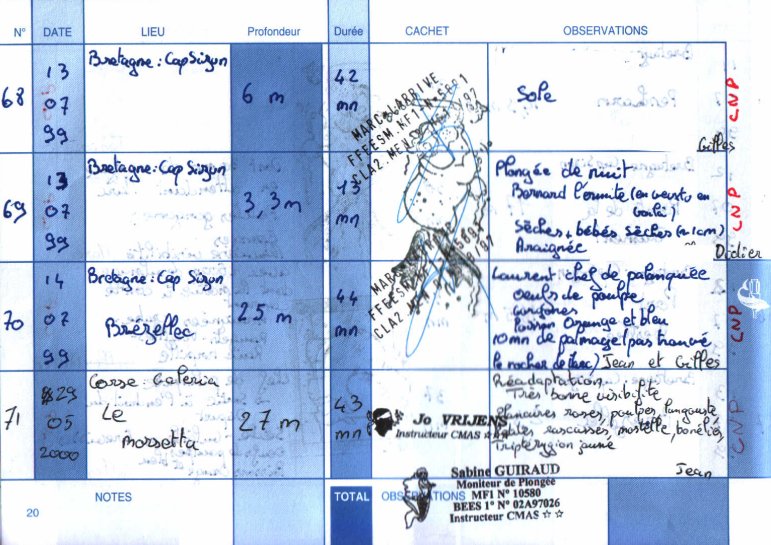 N° DATE LIEU Profondeur Durée CACHET OBSERVATIONS
68
13
07
99
Bretagne : Cap Sizun
6 m
42
mn
MARC LARRIVE
FFEESM.MF1-N°5691
Sole
Gilles
CNP
69
13
07
99
Bretagne : Cap Sizun
3,3 m
13
mn
Plongée de nuit
Bernard l'ermite (en veux tu en
voilà)
Sèches + bébés sèches (≈ 1 cm)
Araignée
Didier
CNP
70
14
07
99
Bretagne : Cap Sizun
Brézellec
25 m
44
mn
Laurent chef de palanquée
oeufs de poulpe
Gorgones
Poisson Orange et bleu
10 mn de palmage (pas trouvé
le rocher de)
Jean et Gilles
CNP
71
29
05
2000
Corse Galeria
Le
Morsetta
27 m
43
mn
Jo VRIJENS
Instructeur CMAS ☆☆☆
Sabine GUIRAUD
Moniteur de Plongée
MF1 N° 10580
BEES 1° N° 02A97026
Instructeur CMAS ☆ ☆
Réadaptation
Très bonne visibilité
planaires roses, poulpes, langouste,
rascasses, mostelle, bonélies,
Tripterygion jaune
Jean
CNP
NOTES
TOTAL
OBSERVATIONS
20